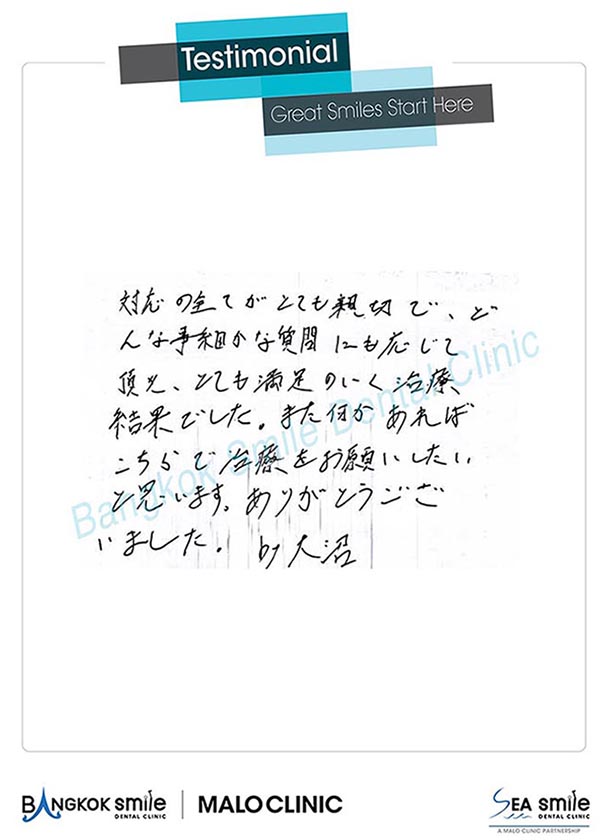 Testimonial
Great Smiles Start Here
対応の全てがとても親切で、ど
んな事細かな質問にも応じて
頂き、とても満足のいく治療
結果でした。また何かあれば
こちらで治療をお願いしたい
と思います。ありがとうござ
いました。 by 大沼
Bangkok Smile Dental Clinic
BANGKOK smile
DENTAL CLINIC
MALO CLINIC
SEA smile
DENTAL CLINIC
A MALO CLINIC PARTNERSHIP